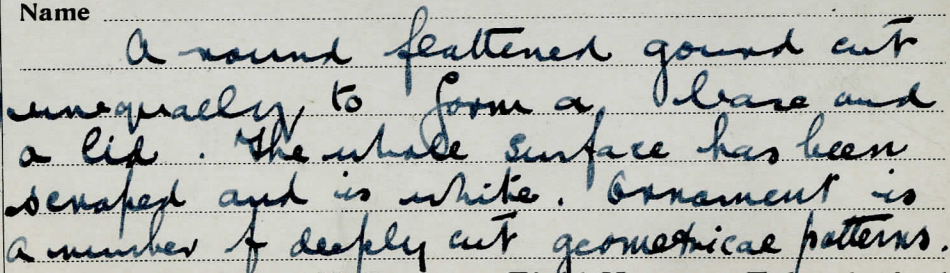 Name
A round flattened gourd cut
unequally to form a base and
a lid. The whole surface has been
scraped and is white. Ornament is
a number of deeply cut geometrical patterns.